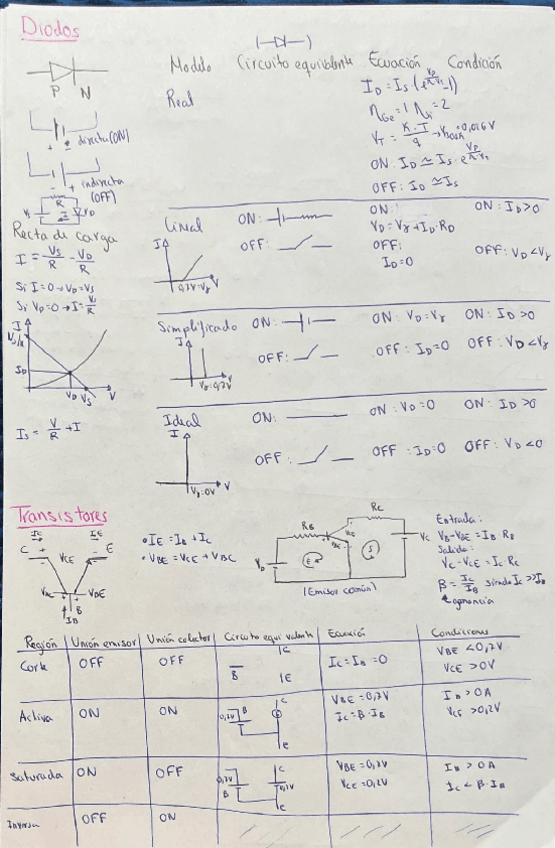 Diodos
P N
directa (ON)
indirecta
(OFF)
R
Recta de carga
I = Vs/R - VD/R
Si I=0 → VD=Vs
Si VD=0 → I=Vs/R
I
Vs/R
ID
VD Vs V
Is = V/R + I
Modelo Circuito equivalente Ecuación Condición
Real
ID = Is·(e^(VD/nVT) -1)
nGe=1 nSi=2
VT = K·T/q
ON: ID ≃ Is·e^(VD/nVT)
OFF: ID ≃ Is
Lineal ON: ON: ON: ID>0
VD=Vγ+ID·RD
I OFF: OFF: OFF: VD<Vγ
ID=0
0,7V=Vγ V
Simplificado ON: ON: VD=Vγ ON: ID>0
I OFF: OFF: ID=0 OFF: VD<Vγ
Vγ=0,7V V
Ideal ON: ON: VD=0 ON: ID>0
I OFF: OFF: ID=0 OFF: VD<0
Vγ=0V V
Transistores
IC IE
C + VCE - E
VBC VBE
B
IB
• IE = IB + IC
• VBE = VCE + VBC
RB RC
VC
(Emisor común)
Entrada:
VB-VBE = IB RB
Salida:
VC-VCE = IC RC
β = IC/IB siendo IC>>IB
ganancia
Región Unión emisor Unión colector Circuito equivalente Ecuación Condiciones
Corte OFF OFF B C E IC=IB=0 VBE<0,7V
VCE>0V
Activa ON ON 0,7V B C e VBE=0,7V IB>0A
IC=β·IB VCE>0,2V
Saturada ON OFF 0,7V B C e VBE=0,7V IB>0A
VCE=0,2V IC<β·IB
Inversa OFF ON